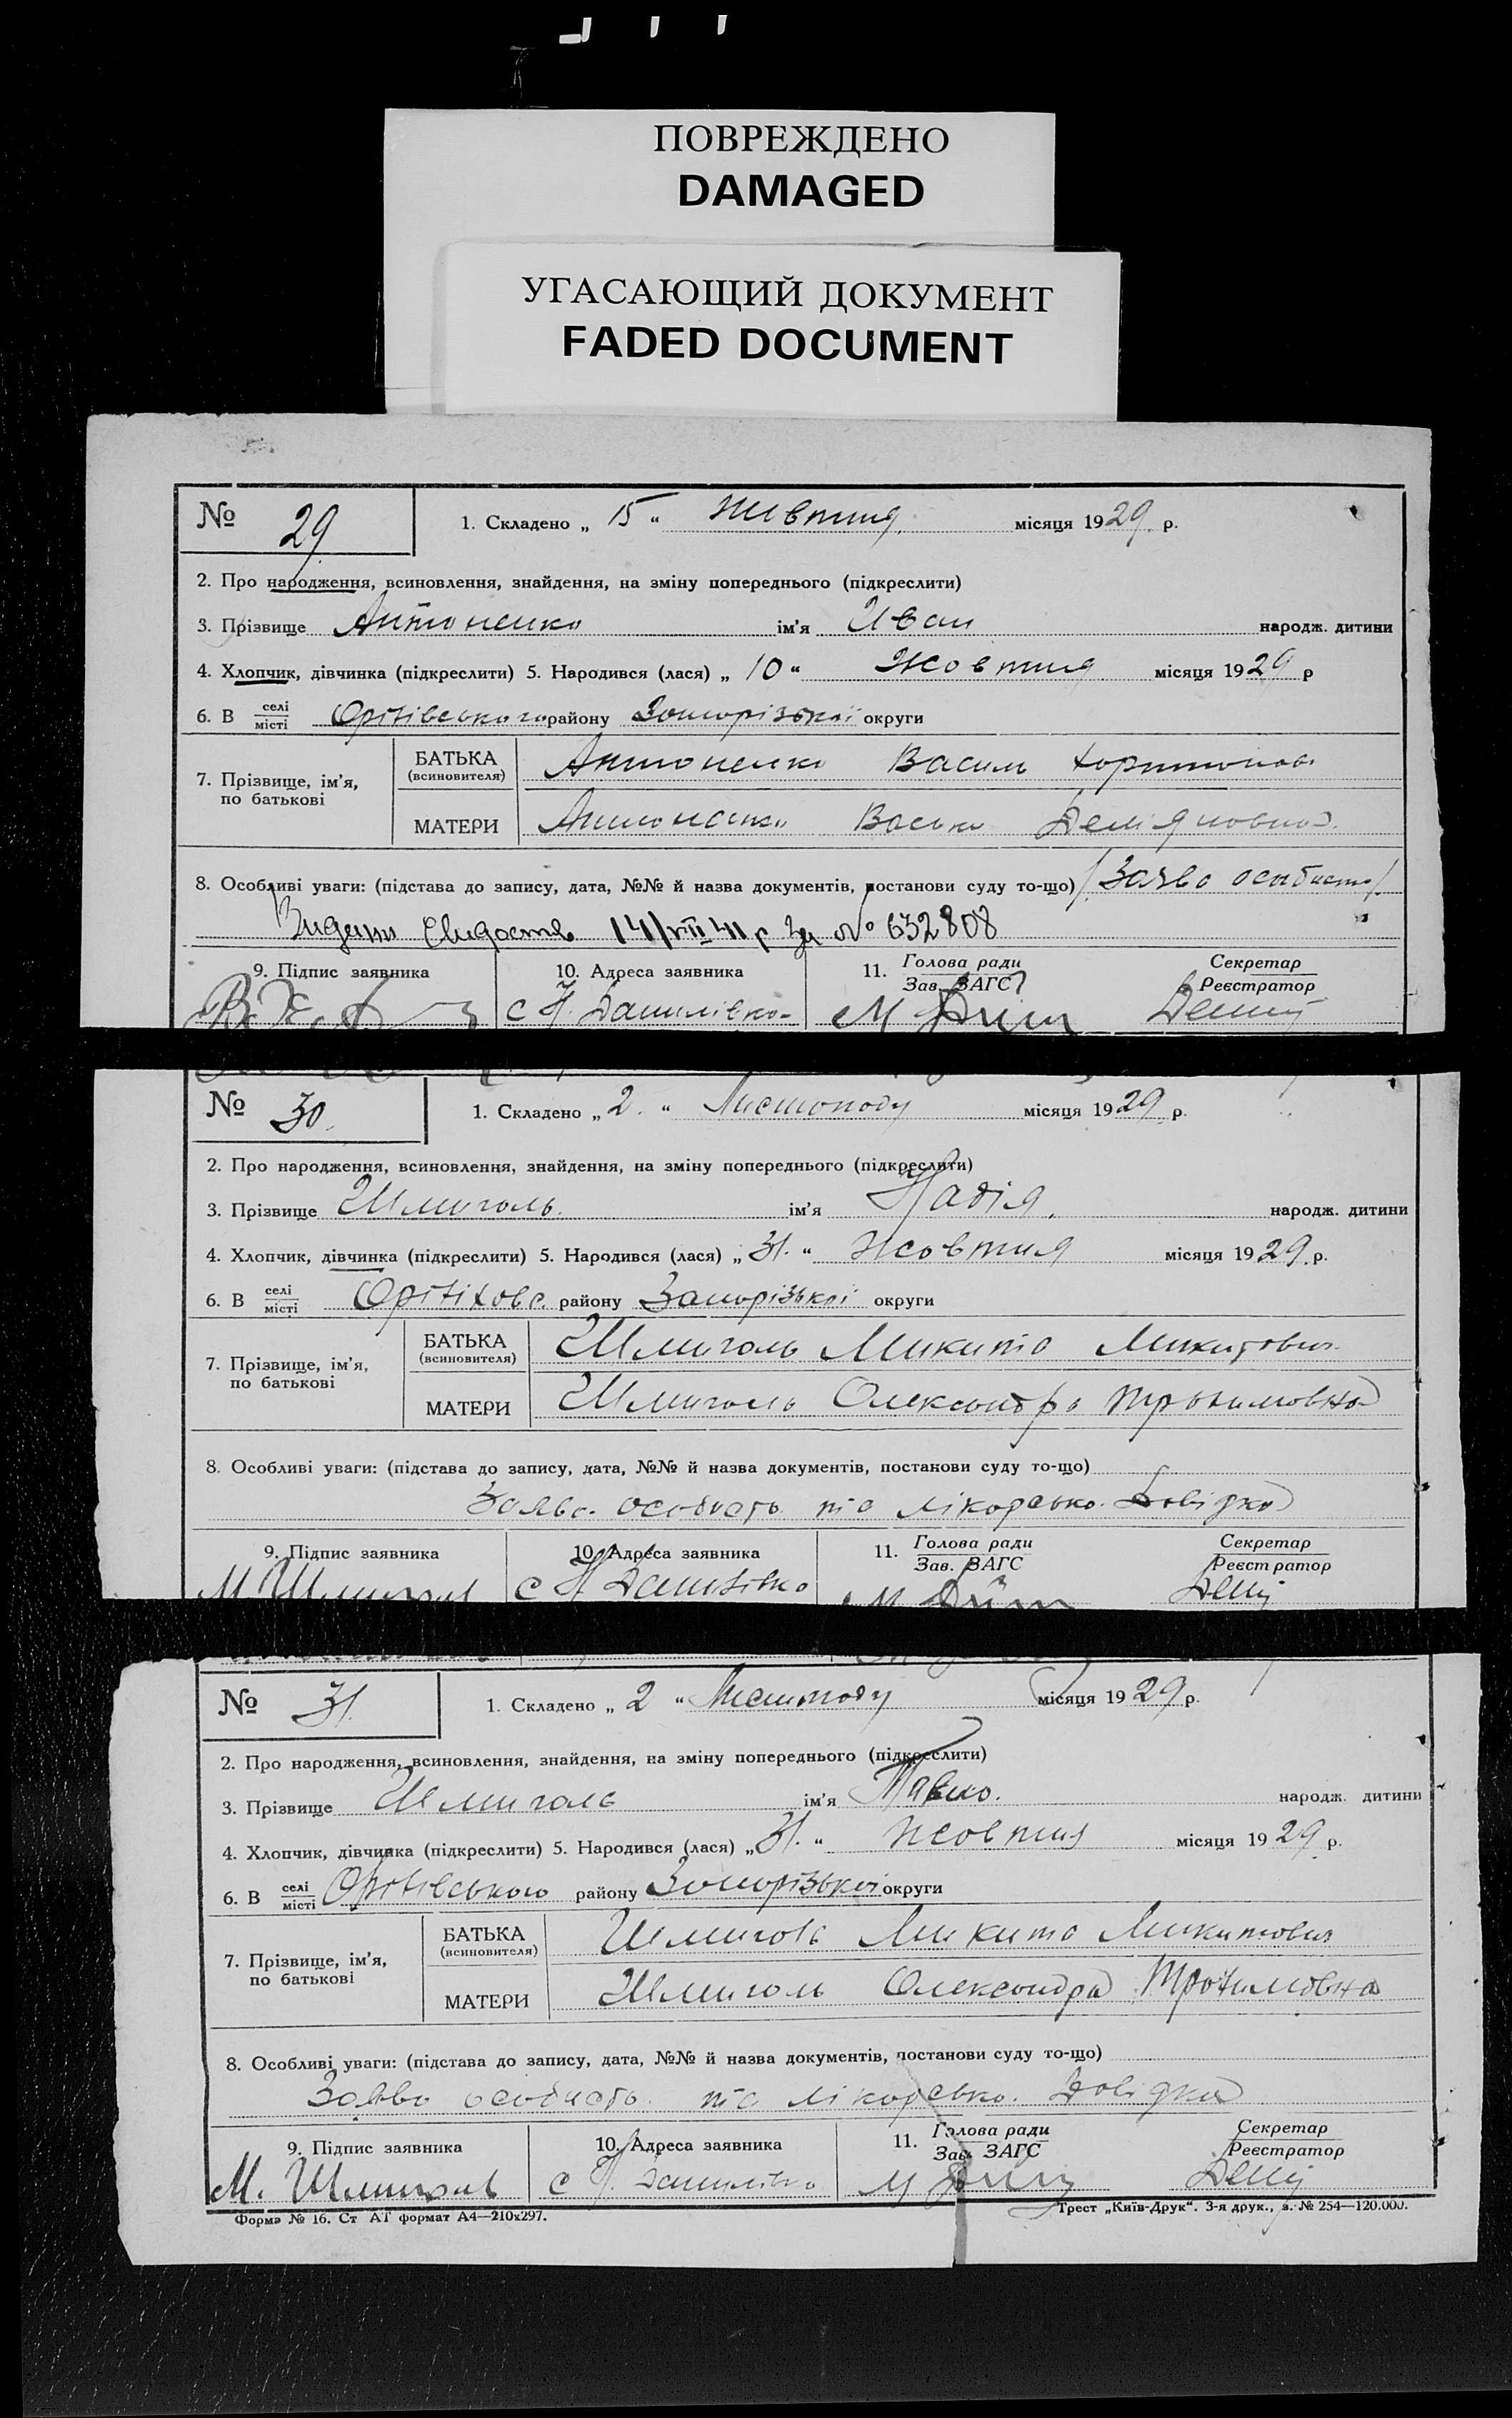 ПОВРЕЖДЕНО
DAMAGED
УГАСАЮЩИЙ ДОКУМЕНТ
FADED DOCUMENT
№ 29 1. Складено „ 15 “ Жовтня місяця 1929 р.
2. Про народження, всиновлення, знайдення, на зміну попереднього (підкреслити)
3. Прізвище Антоненко ім'я Иван народж. дитини
4. Хлопчик, дівчинка (підкреслити) 5. Народився (лася) „ 10 “ Жовтня місяця 1929 р
6. В селі місті Оріхівського району Запорізької округи
7. Прізвище, ім'я, по батькові
БАТЬКА (всиновителя) Антоненко Василь Харитонов
МАТЕРИ Антоненко Демʼяновна
8. Особливі уваги: (підстава до запису, дата, №№ й назва документів, постанови суду то-що) Заява особиста
14/VIII 41 р за № 632808
9. Підпис заявника 10. Адреса заявника 11. Голова ради Зав. ЗАГС Секретар Реєстратор
с Н. Данилівка
№ 30 1. Складено „ 2 “ Листопаду місяця 1929 р.
2. Про народження, всиновлення, знайдення, на зміну попереднього (підкреслити)
3. Прізвище Шмиголь ім'я Надія народж. дитини
4. Хлопчик, дівчинка (підкреслити) 5. Народився (лася) „ 31. “ Жовтня місяця 1929 р.
6. В селі місті Оріхівс. району Запорізької округи
7. Прізвище, ім'я, по батькові
БАТЬКА (всиновителя) Шмиголь Микита Микитович
МАТЕРИ Шмиголь Олександра Трохимовна
8. Особливі уваги: (підстава до запису, дата, №№ й назва документів, постанови суду то-що)
Заява особиста та лікарська Довідка
9. Підпис заявника 10. Адреса заявника 11. Голова ради Зав. ЗАГС Секретар Реєстратор
М. Шмиголь с Н Данилівка
№ 31. 1. Складено „ 2 “ Листопаду місяця 1929 р.
2. Про народження, всиновлення, знайдення, на зміну попереднього (підкреслити)
3. Прізвище Шмиголь ім'я Павло. народж. дитини
4. Хлопчик, дівчинка (підкреслити) 5. Народився (лася) „ 31. “ Жовтня місяця 1929 р.
6. В селі місті Оріхівського району Запорізької округи
7. Прізвище, ім'я, по батькові
БАТЬКА (всиновителя) Шмиголь Микита Микитович
МАТЕРИ Шмиголь Олександра Трохимовна
8. Особливі уваги: (підстава до запису, дата, №№ й назва документів, постанови суду то-що)
Заява особиста та лікарська Довідка
9. Підпис заявника 10. Адреса заявника 11. Голова ради Зав. ЗАГС Секретар Реєстратор
М. Шмиголь с Н. Данилівка
Форма № 16. Ст АТ формат А4—210х297. Трест „Київ-Друк“. 3-я друк., з. № 254—120.000.